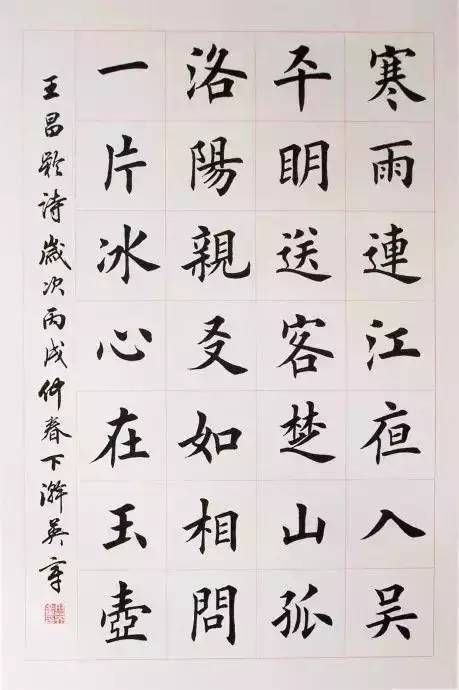 寒雨連江夜入吴
平明送客楚山孤
洛陽親友如相問
一片冰心在玉壺
王昌齡詩歲次丙戌仲春下澣英章